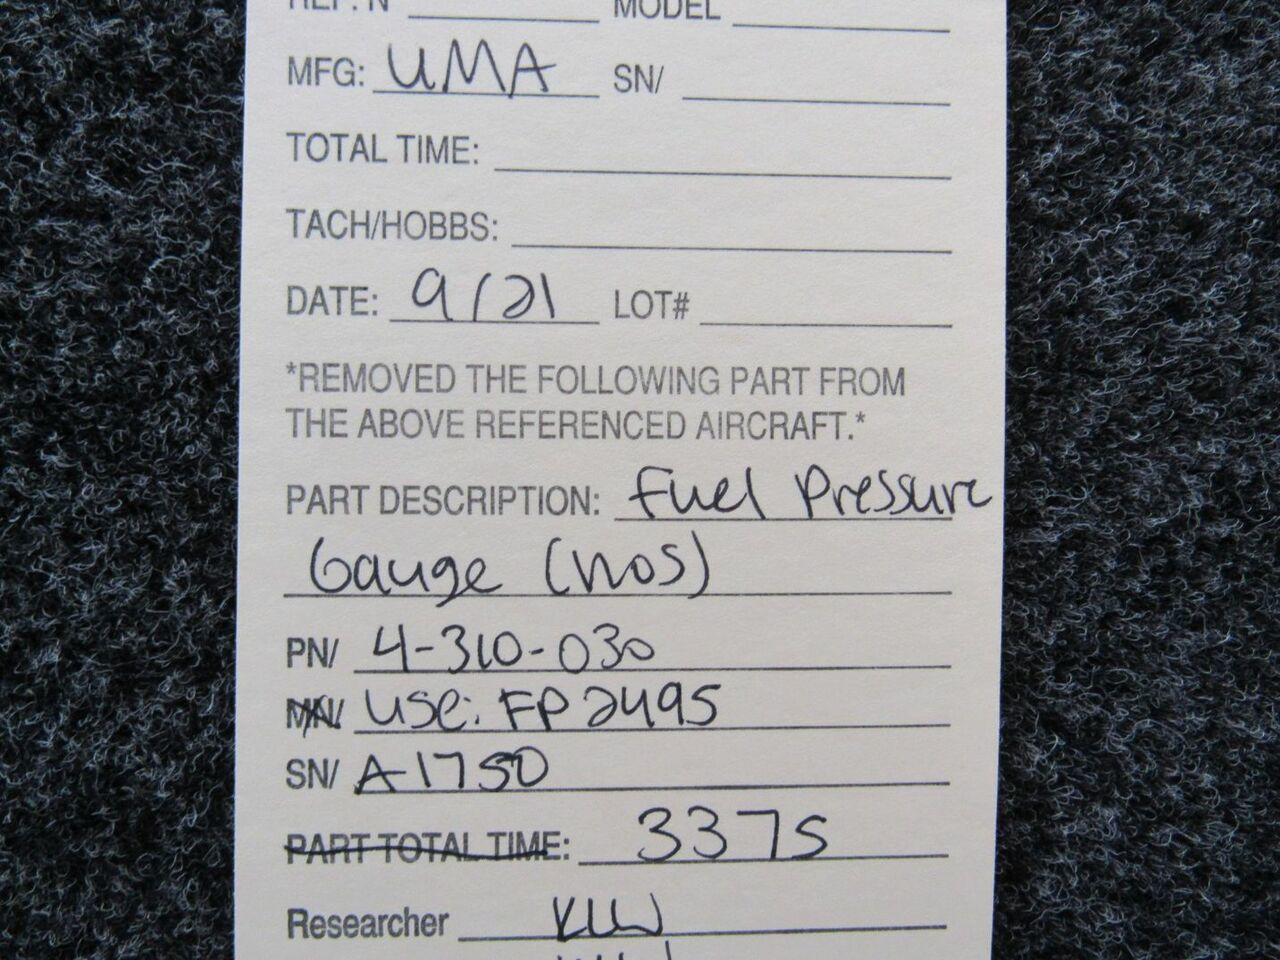 REF: N ____ MODEL ____
MFG: UMA SN/
TOTAL TIME:
TACH/HOBBS:
DATE: 9/21 LOT#
*REMOVED THE FOLLOWING PART FROM
THE ABOVE REFERENCED AIRCRAFT.*
PART DESCRIPTION: Fuel Pressure
Gauge (NOS)
PN/ 4-310-030
MN/ USE: FP2495
SN/ A1750
PART TOTAL TIME: 3375
Researcher KLW